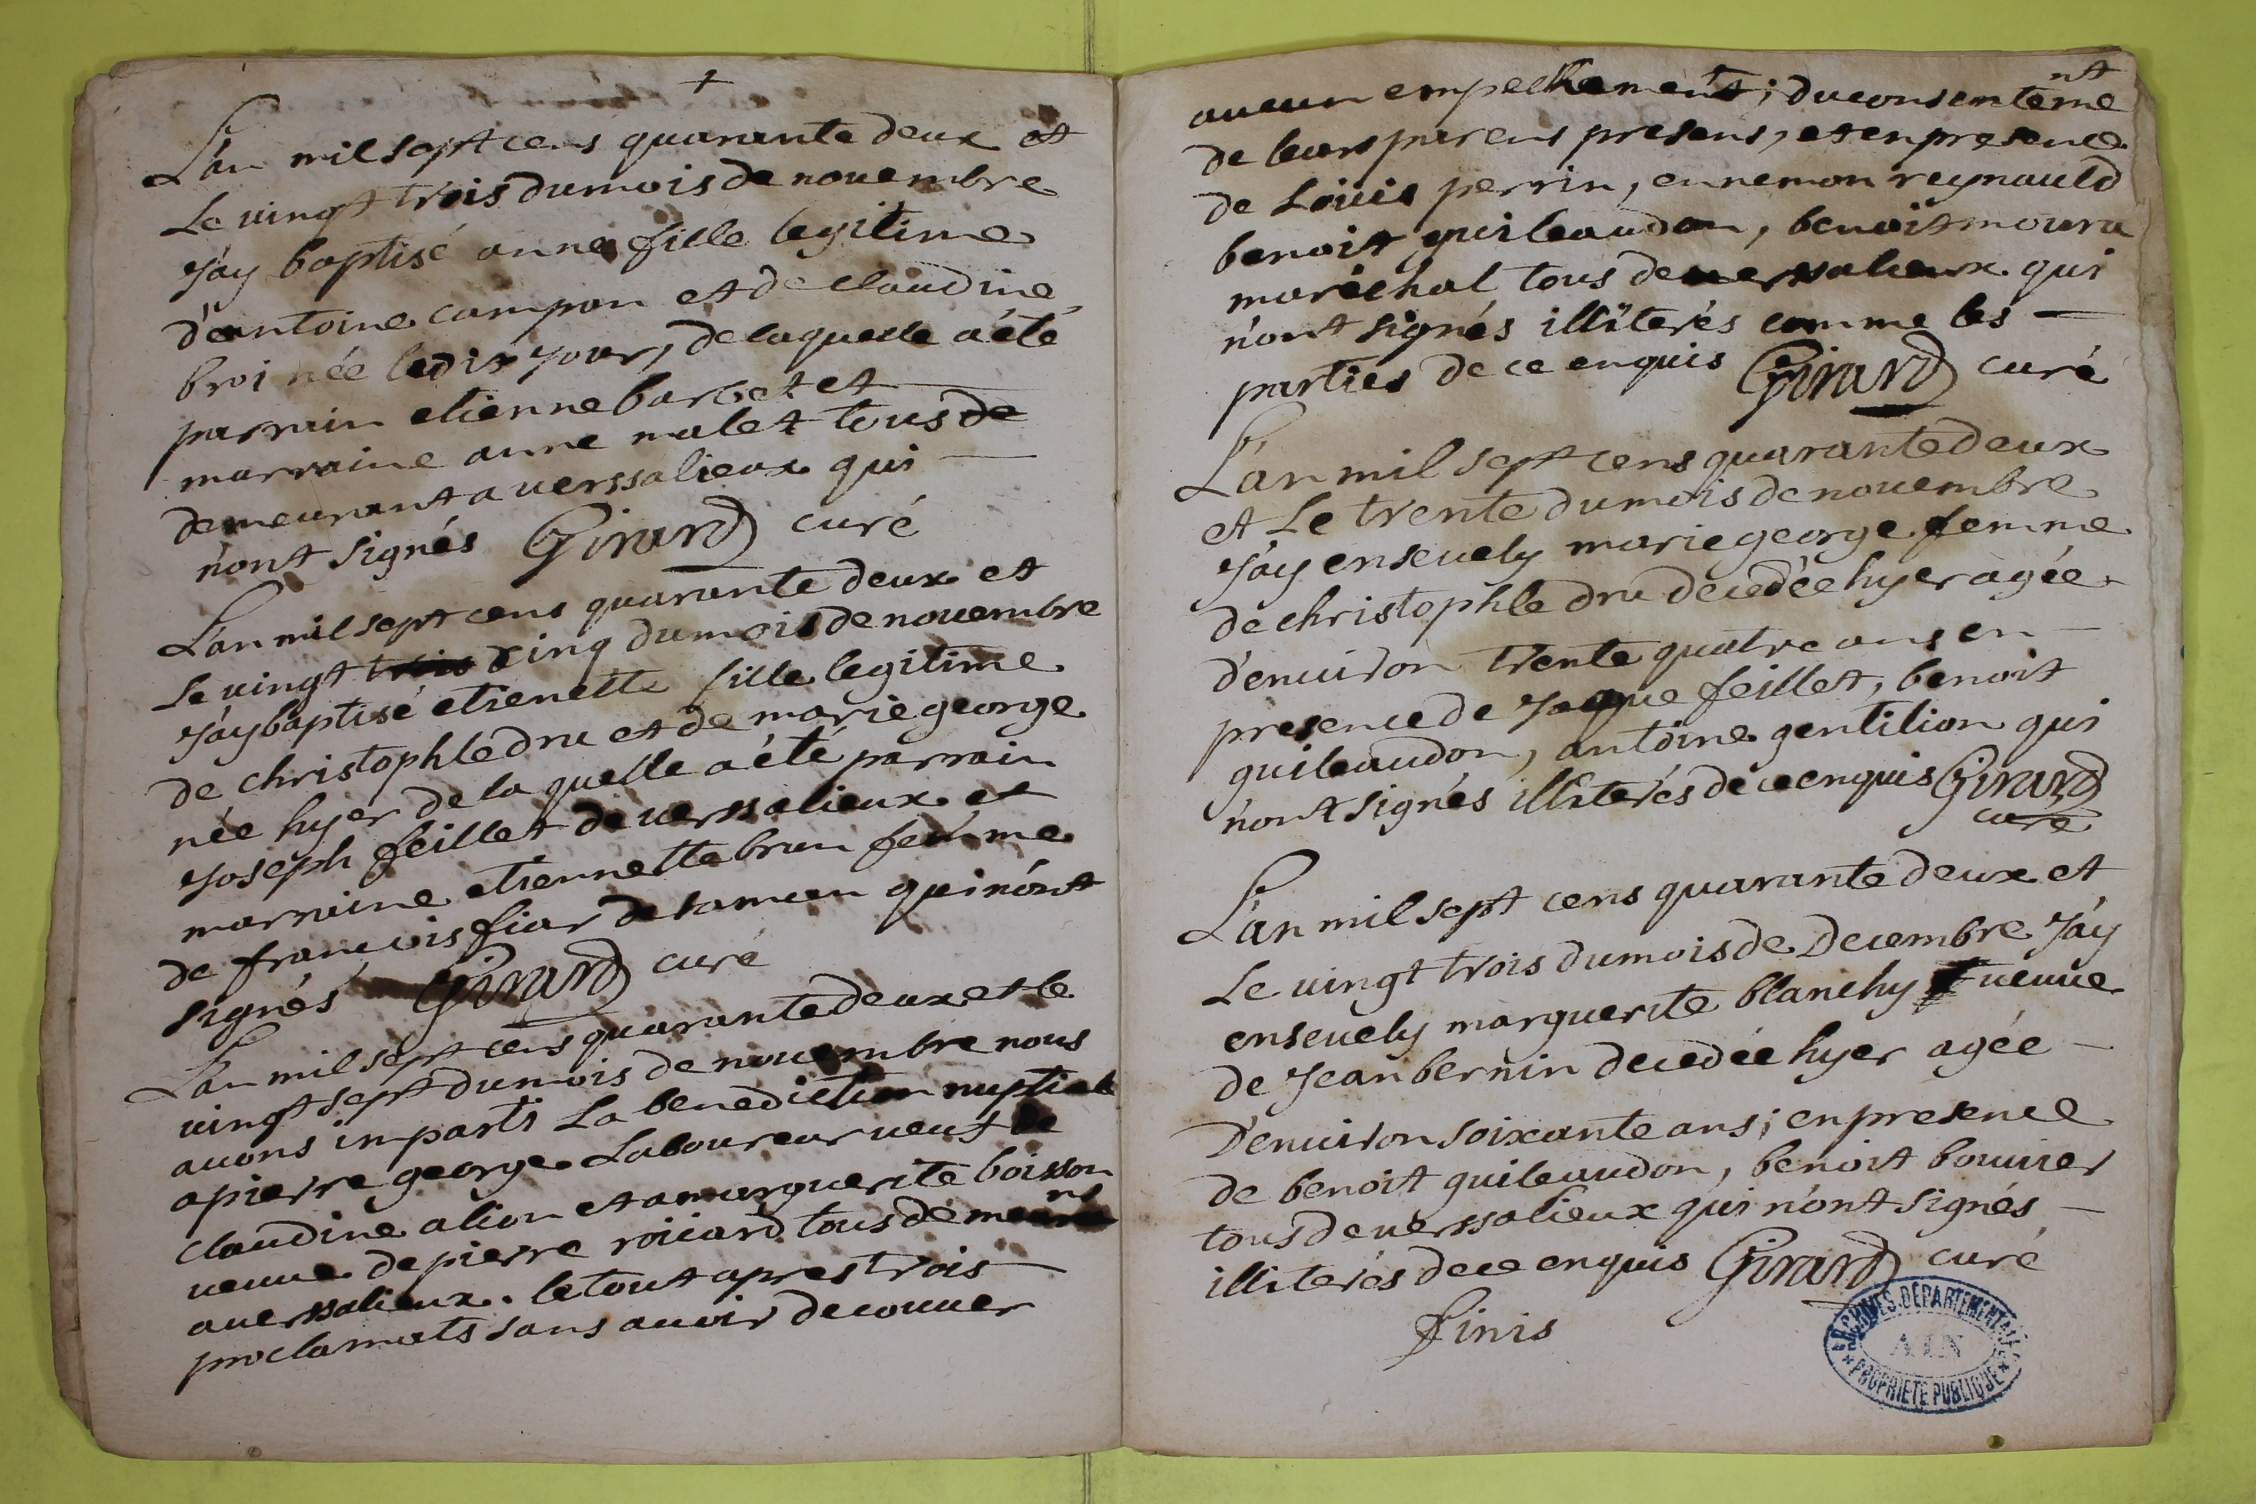 +
L'an mil sept cens quarante deux et
Le vingt trois du mois de novembre
J'ay baptisé anne fille legitime
d'antoine campon et de claudine
broi née ledit jour, de laquelle a été
parrain etienne barbet et
marraine anne malet tous de
demeurant a verssalieux qui
n'ont signés Girard curé
L'an mil sept cens quarante deux et
Le vingt trois cinq du mois de novembre
J'ay baptisé etienette fille legitime
de christophle dru et de marie george
née hyer de la quelle a été parrain
Joseph feillet de verssalieux et
marraine etiennette brun femme
de françois fiar de qui n'ont
signés Girard curé
L'an mil sept cens quarante deux et le
vingt sept du mois de novembre nous
avons imparti La benediction nuptiale
a pierre george Laboureur veuf de
claudine alion et a marguerite boisson
veuve de pierre roiiard tous de
a verssalieux. le tout apres trois
proclamats sans avoir decouver
aucun empechement; du consentement
de leurs parens presens, et en presence
de Loüis perrin, ennemon reynauld
benoit guileaudon, benoit moura
maréchal tous de verssalieux qui
n'ont signés illiterés comme les
parties de ce enquis Girard curé
L'an mil sept cens quarante deux
et Le trente du mois de novembre
J'ay ensevely marie george femme
de christophle dru decedée hyer agée
d'environ trente quatre ans en
presence de Jaque feillet, benoit
guileaudon, antoine gentilion qui
n'ont signés illiterés de ce enquis Girard
curé
L'an mil sept cens quarante deux et
Le vingt trois du mois de Decembre J'ay
ensevely marguerite blanchy veuve
de Jean bernin decedée hyer agée
D'environ soixante ans; en presence
de benoit guileaudon, benoit bouvier
tous de verssalieux qui n'ont signés
illiterés de ce enquis Girard curé
finis
ARCHIVES DÉPARTEMENTALES
AIN
* PROPRIÉTÉ PUBLIQUE *